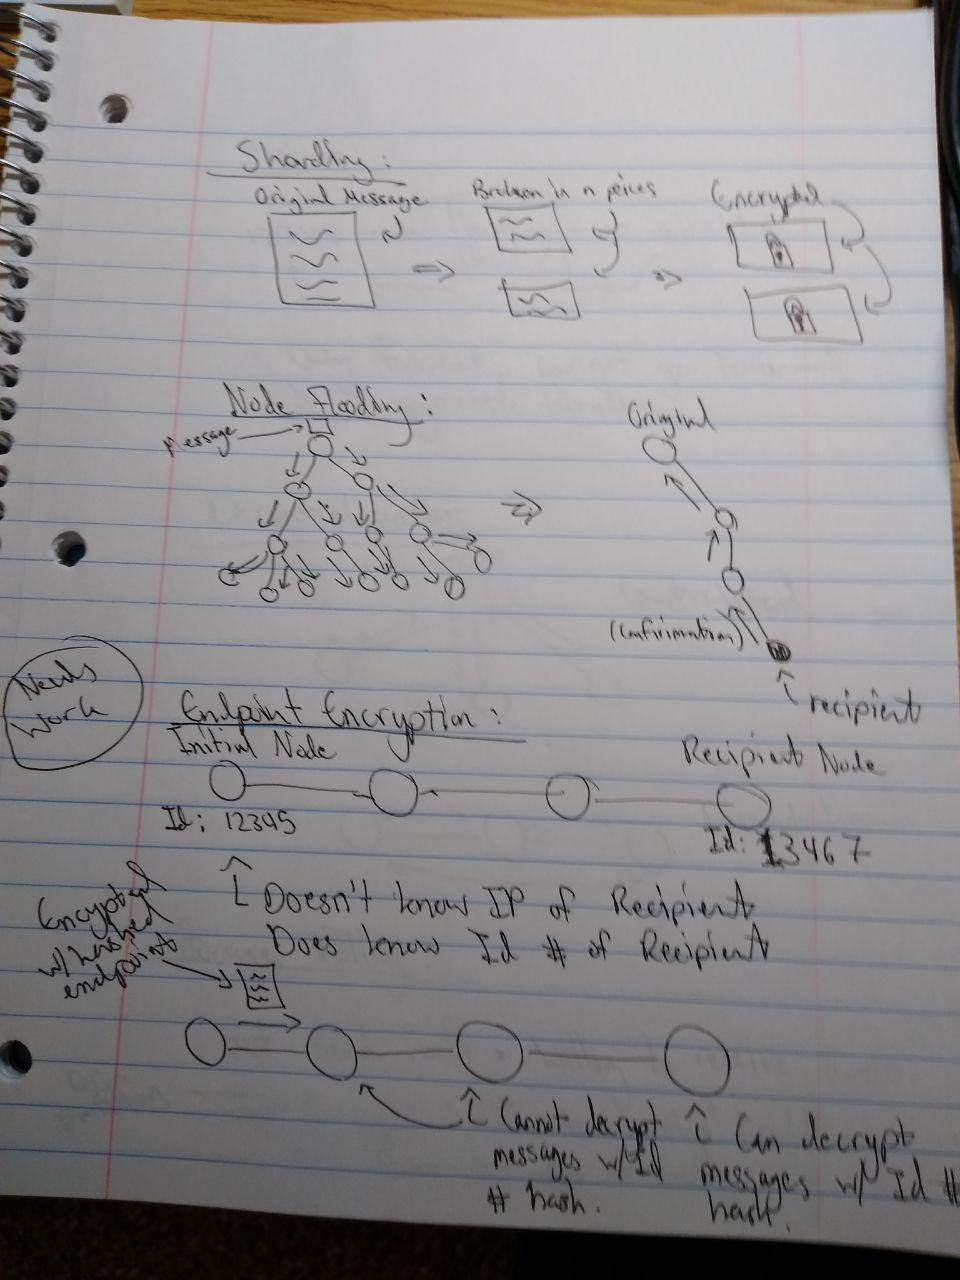 Sharding:
Original Message
Broken in n peices
Encrypted
Node Flooding:
Message
Original
(Confirimation)
recipient
Needs
Work
Endpoint Encryption:
Initial Node
Recipient Node
Id: 12345
Id: 13467
Doesn't know IP of Recipient
Does know Id # of Recipient
Encrypted
w/ hashed
endpoint
Cannot decrypt
messages w/ Id
# hash.
Can decrypt
messages w/ Id #
hash.